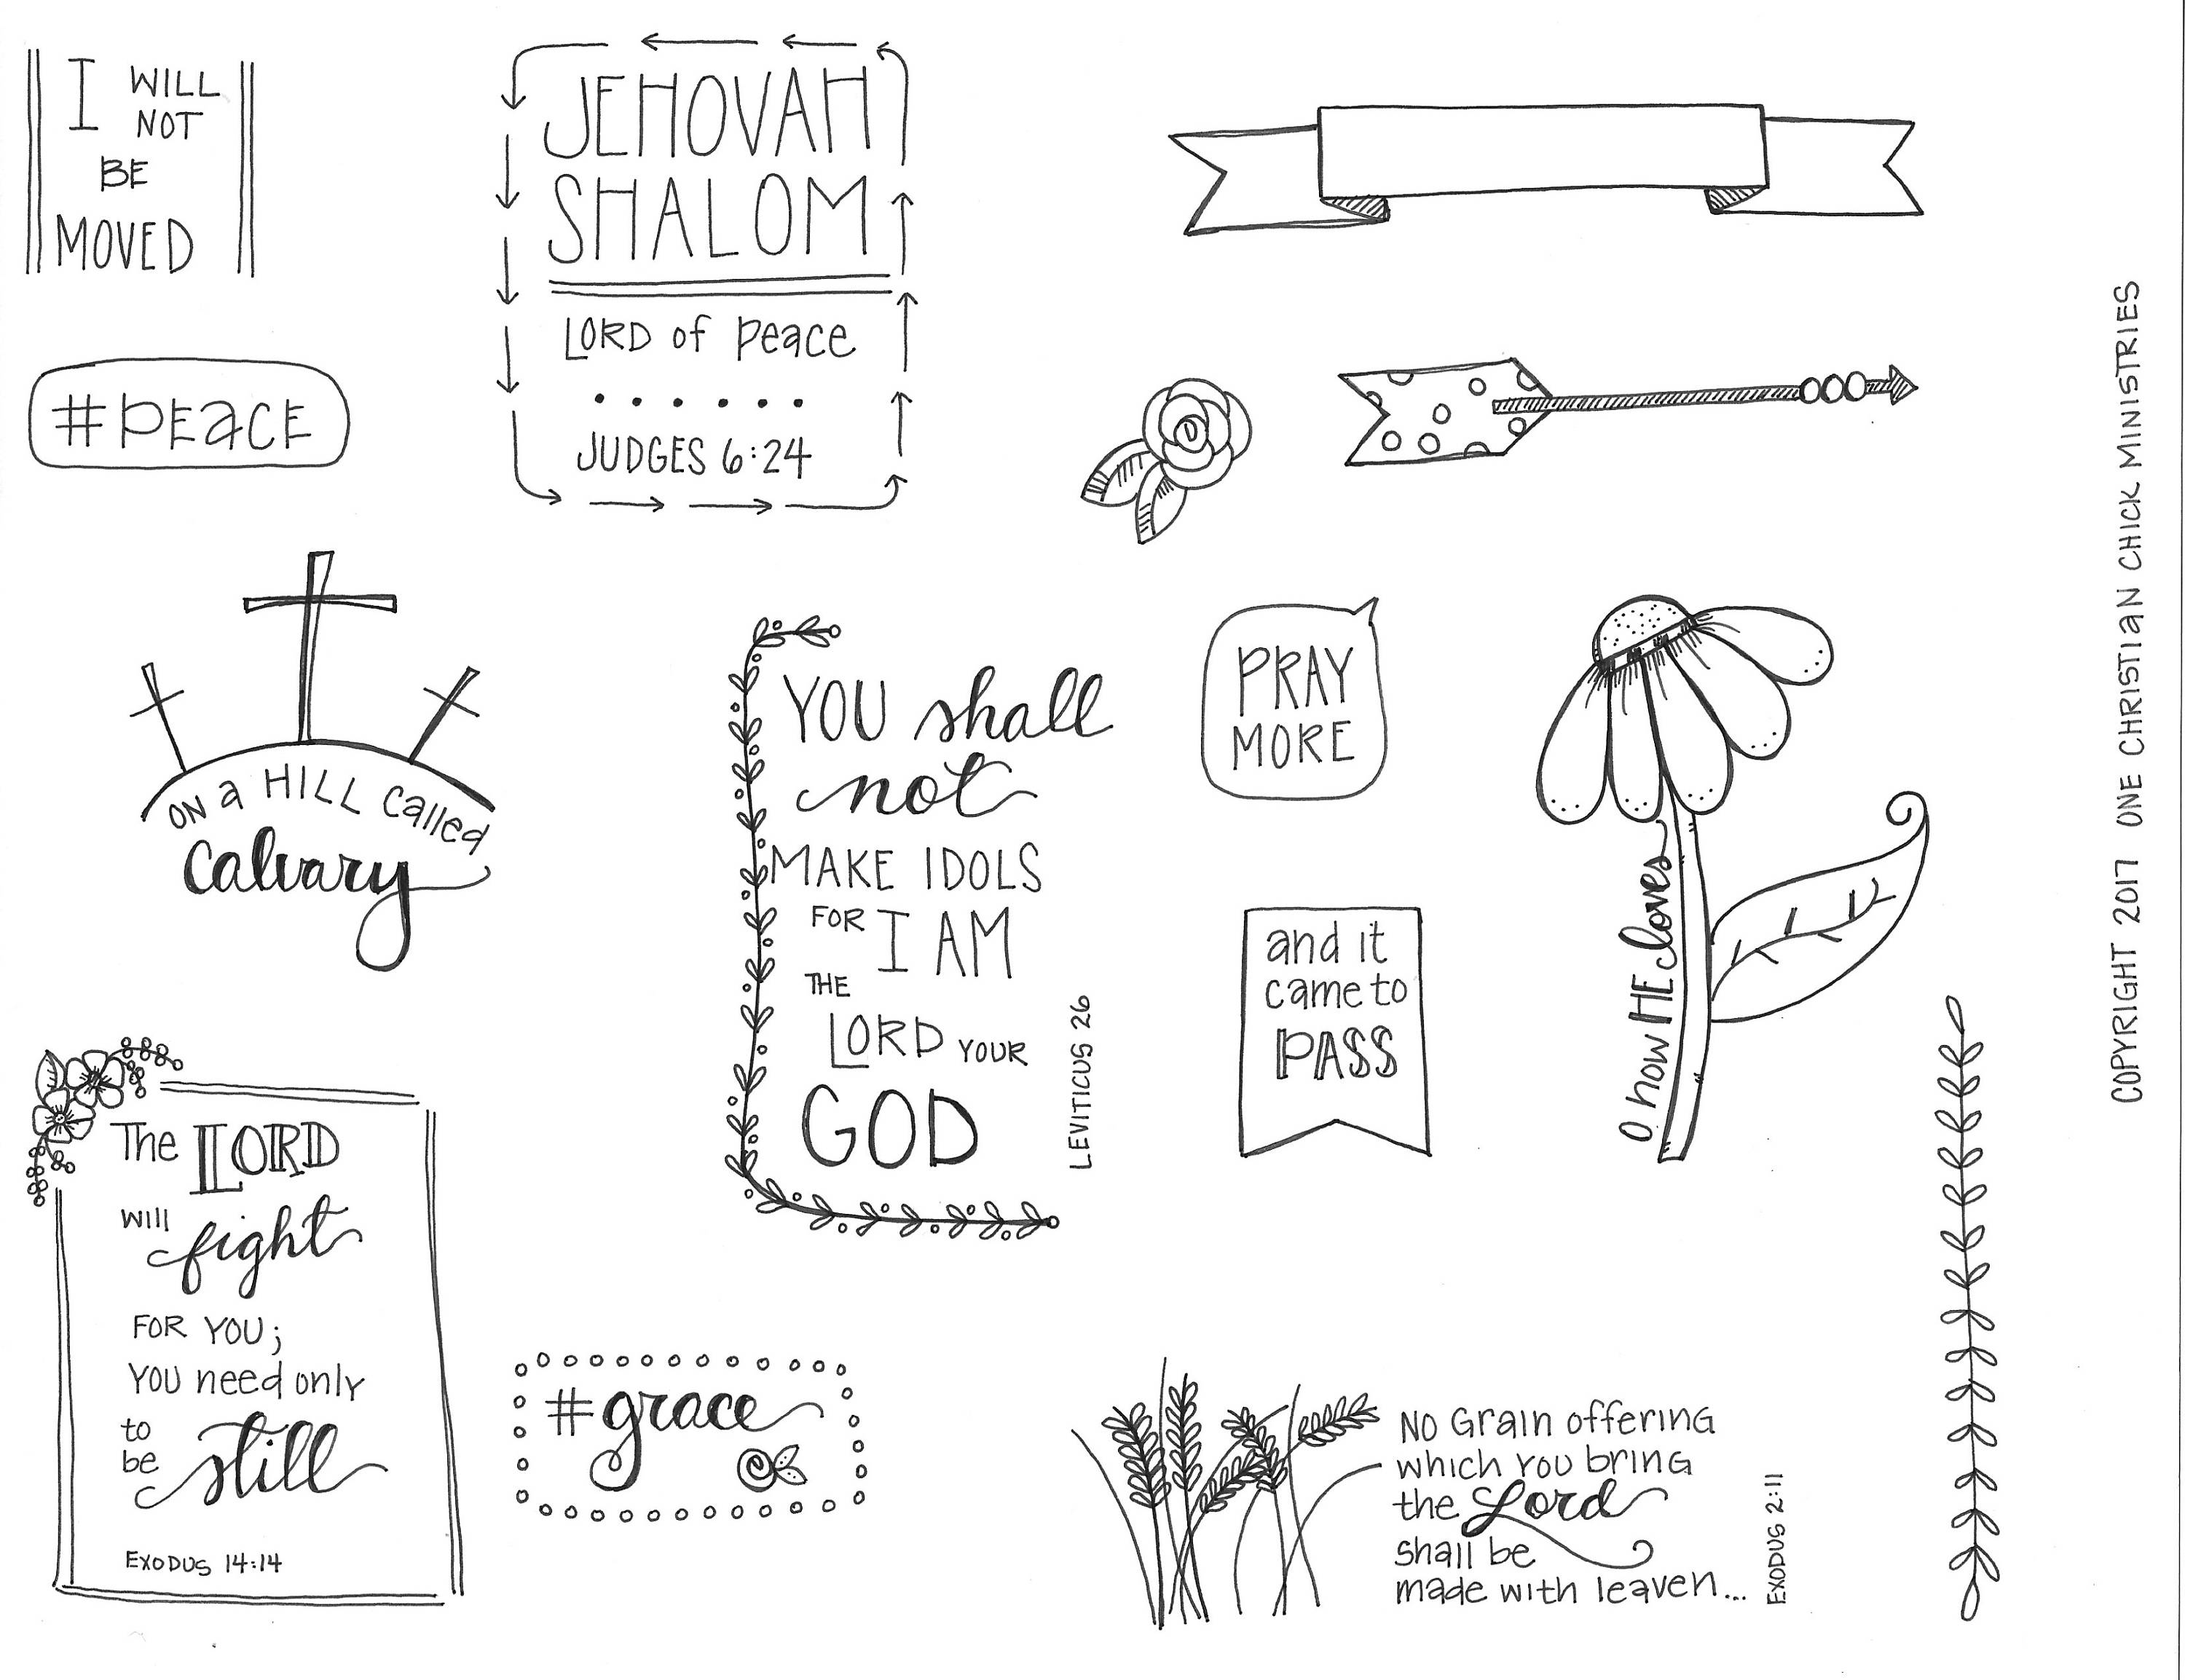 I WILL
NOT
BE
MOVED
#PEACE
JEHOVAH
SHALOM
LORD of Peace
JUDGES 6:24
ON a HILL called
Calvary
YOU shall
not
MAKE IDOLS
FOR I AM
THE
LORD YOUR
GOD
LEVITICUS 26
PRAY
MORE
and it
came to
PASS
O how HE loves
The LORD
will fight
FOR YOU;
YOU need only
to
be still
EXODUS 14:14
#grace
NO Grain offering
which you bring
the Lord
shall be
made with leaven...
EXODUS 2:11
COPYRIGHT 2017 ONE CHRISTIAN CHICK MINISTRIES